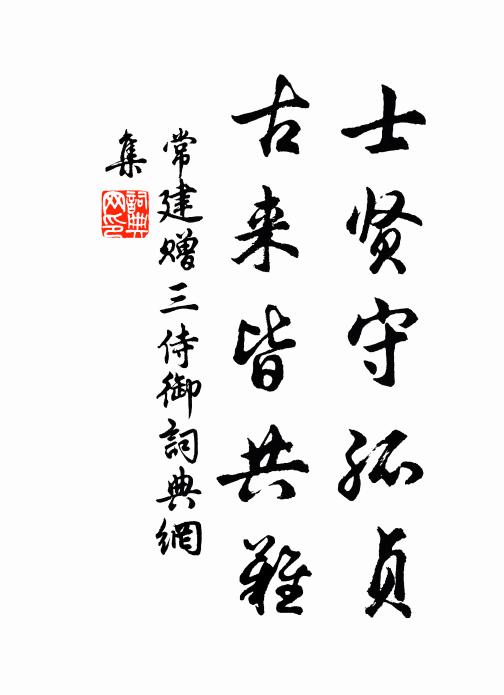 士贤守孤贞
古来皆共難
常建赠三侍御詞典網
集
詞典
网印